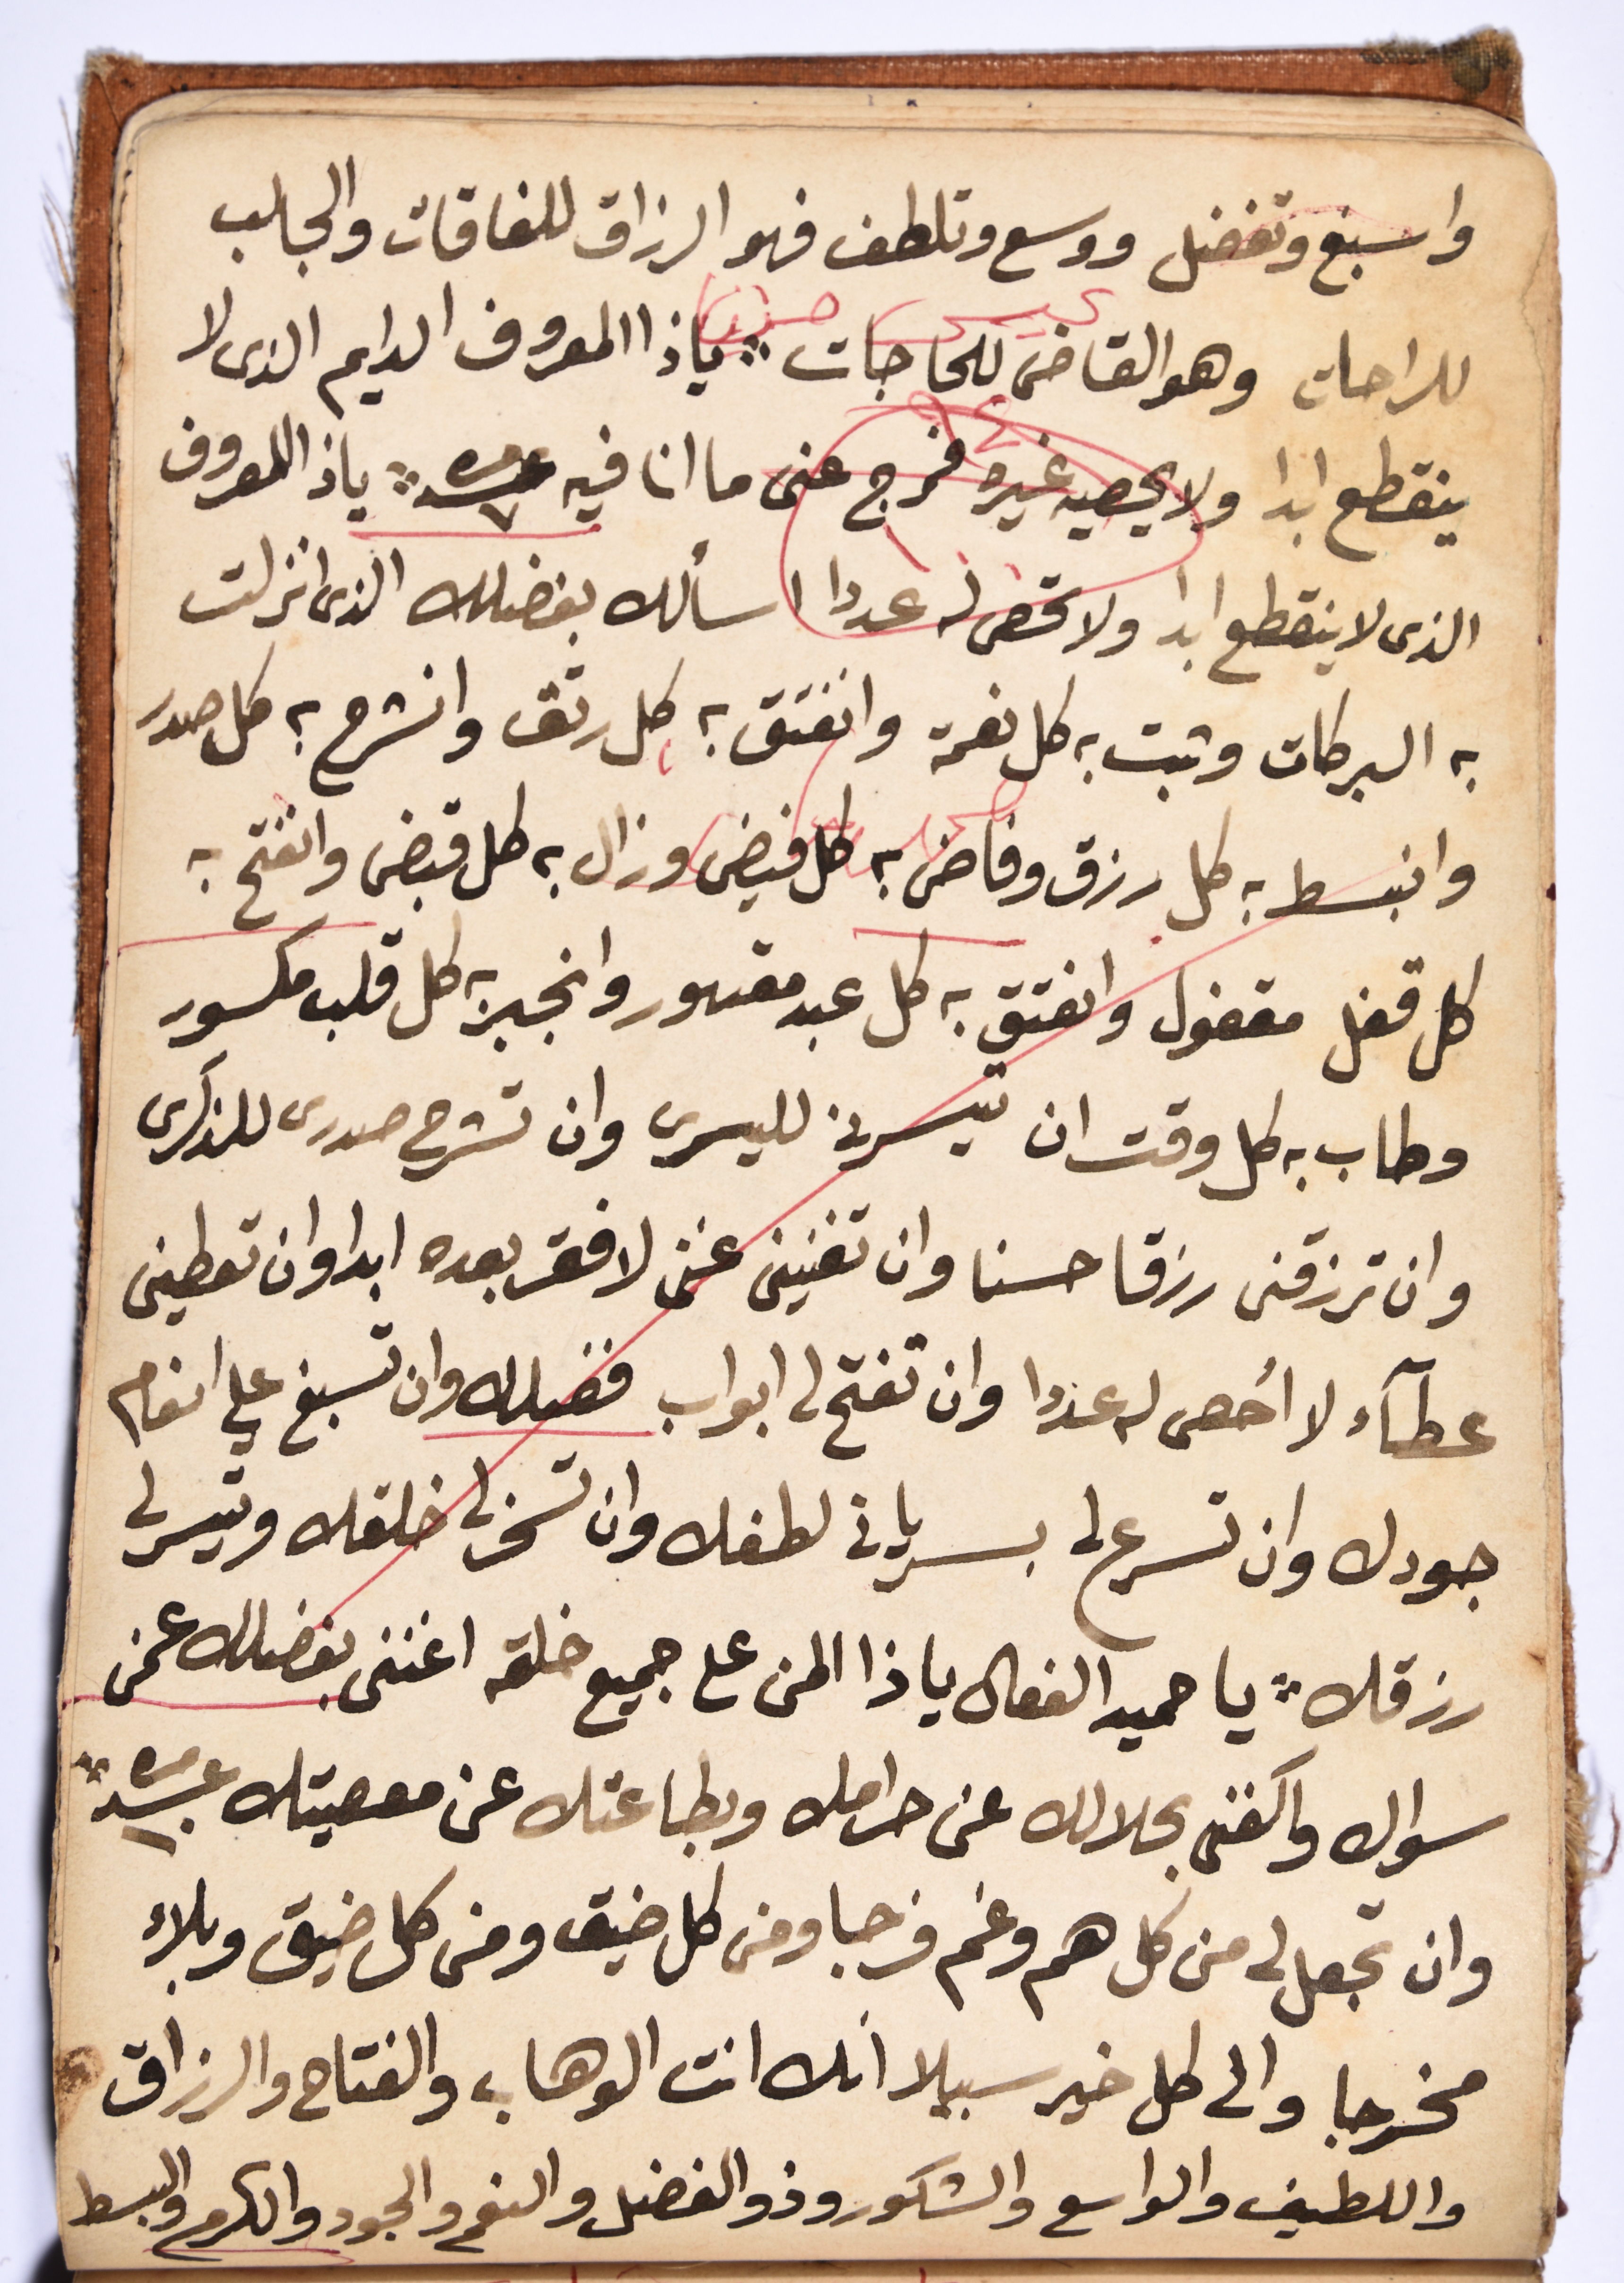 واسبغ وتفضل ووسع وتلطف فهو الرزاق للفاقات والجالب
للراحات وهو القاضى للحاجات ياذا المعروف الدايم الذى لا
ينقطع ابدا ولا يحصيه غيره فرج عنى ما انا فيه ياذا المعروف
الذى لا ينقطع ابدا ولا تحصى له عددا اسألك بفضلك الذى انزلت
به البركات وثبت به كل نعمة وانفتق به كل رتق وانشرح به كل صدر
وانبسط به كل رزق وفاض به كل فيض وزال به كل قبض وانفتح به
كل قفل مقفول وانفتق به كل عبد مقهور وانجبر به كل قلب مكسور
وطاب به كل وقت ان تيسرنى لليسرى وان تشرح صدرى للذكرى
وان ترزقنى رزقا حسنا وان تغنينى غنى لا فقر بعده ابدا وان تعطينى
عطآء لا أحصى له عددا وان تفتح لى ابواب فضلك وان تسبغ علي انعام
جودك وان تسرع لى بسريان لطفك وان تسخر لى خلقك وتيسر لى
رزقك يا حميد الفعال ياذا المن على جميع خلقه اغننى بفضلك عمن
سواك واكفنى بحلالك عن حرامك وبطاعتك عن معصيتك
وان تجعل لى من كل هم وغم فرجا ومن كل ضيق ومن كل ضيق وبلاء
مخرجا والى كل خير سبيلا انك انت الوهاب والفتاح والرزاق
واللطيف والواسع والشكور وذو الفضل والنعم والجود والكرم والبسط